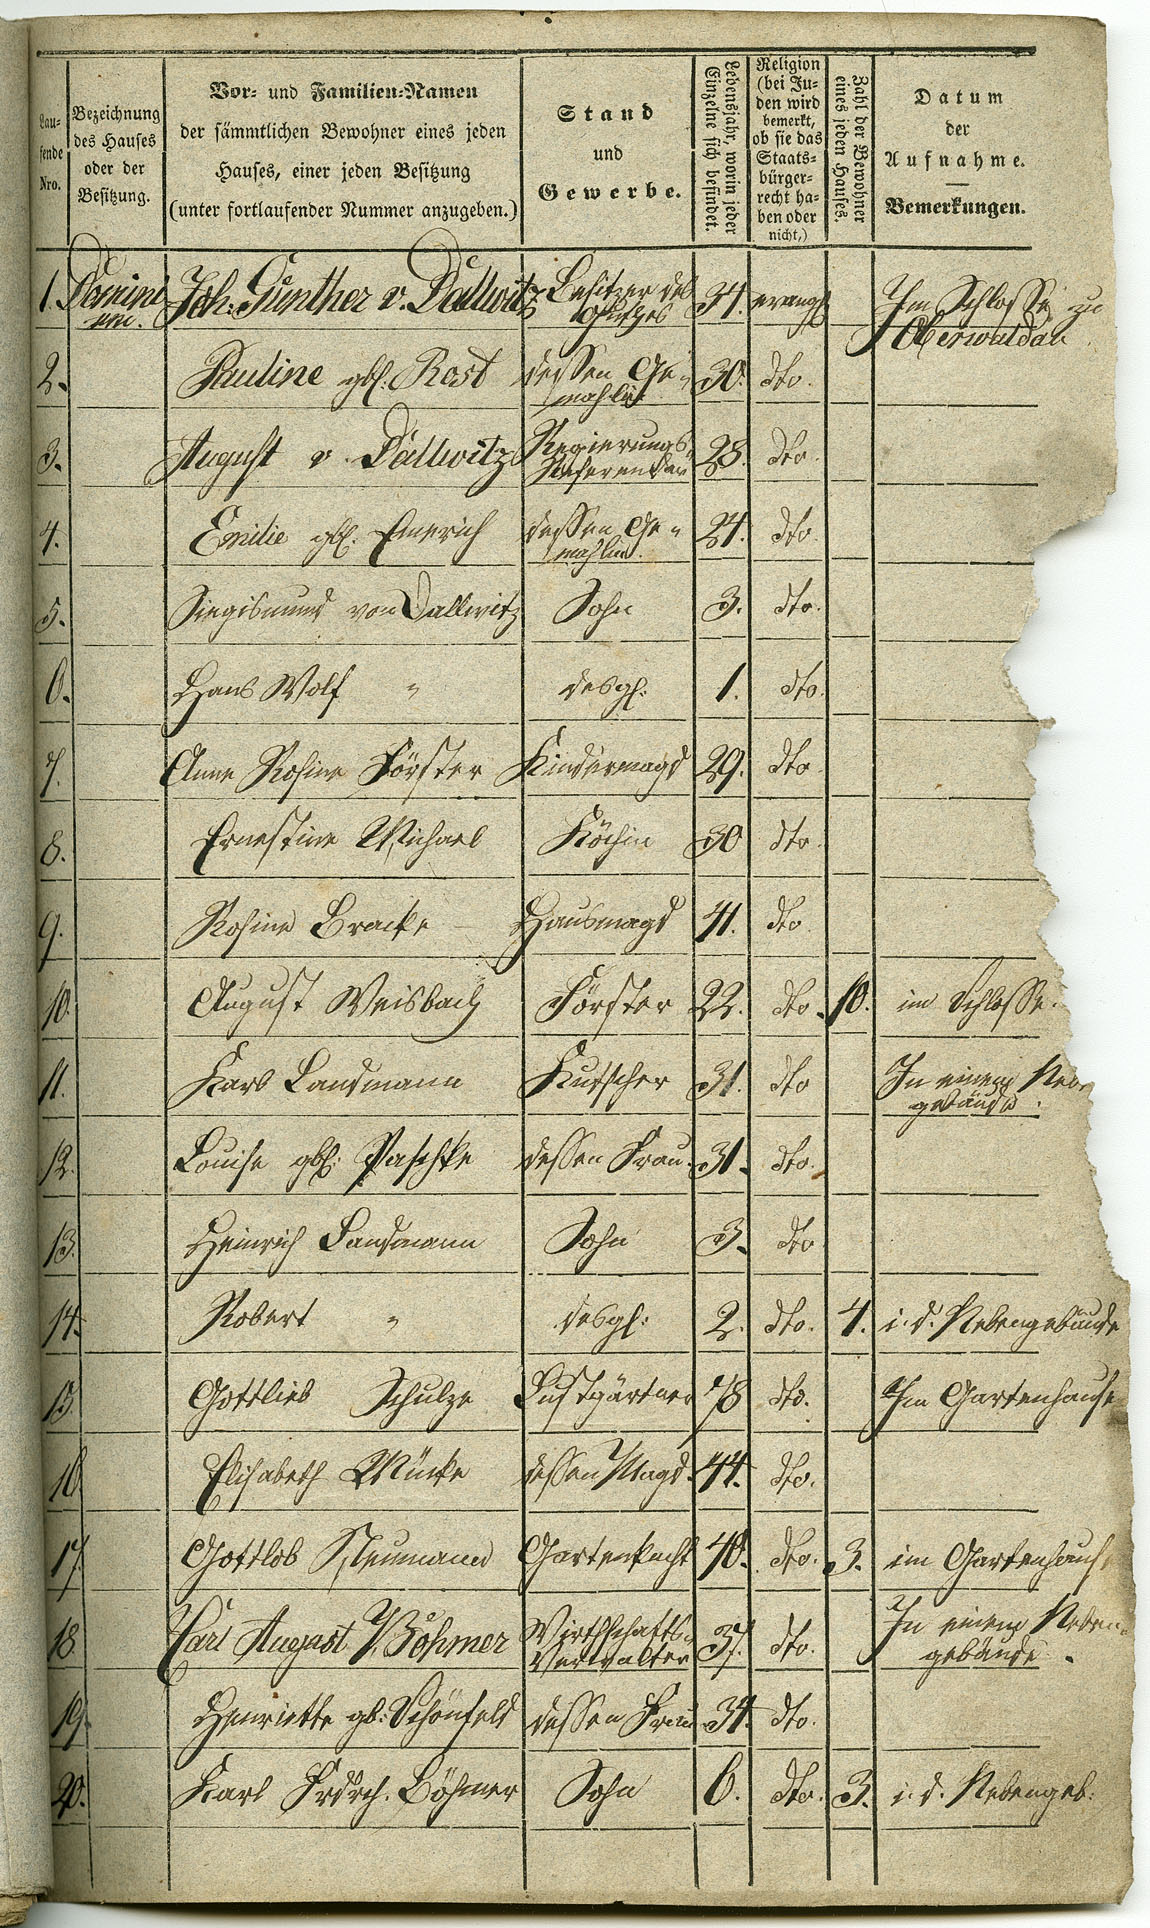 Lau-
fende
Nro.
Bezeichnung
des Hauses
oder der
Besitzung.
Vor- und Familien-Namen
der sämmtlichen Bewohner eines jeden
Hauses, einer jeden Besitzung
(unter fortlaufender Nummer anzugeben.)
Stand
und
Gewerbe.
Lebensjahr, worin jeder
Einzelne sich befindet.
Religion
(bei Ju-
den wird
bemerkt,
ob sie das
Staats-
bürger-
recht ha-
ben oder
nicht,)
Zahl der Bewohner
eines jeden Hauses.
Datum
der
Aufnahme.
Bemerkungen.
1. Domini Joh: Günther v. Dallwitz Besitzer des 34. evangl. Im Schlosse zu
um. Gutes Oberwaldau
2. Pauline gbl. Rost dessen Ge- 30. dto.
mahlin
3. August v Dallwitz Regierungs 28. dto.
Referendar
4. Emilie gbl. Emerich dessen Ge- 24. dto.
mahlin.
5. Siegismund von Dallwitz Sohn 3. dto.
6. Hans Wolf " desgl: 1. dto.
7. Anne Rosine Förster Kindermagd 29. dto.
8. Ernestine Michael Köchin 30 dto.
9. Rosine Bracke Hausmagd 41. dto.
10. August Weisbach Förster 22. dto. 10. im Schlosse.
11. Karl Landmann Kutscher 31. dto In einem Nebe
gebäude.
12. Louise gbl: Paschke dessen Frau. 31. dto.
13. Heinrich Landmann Sohn 3. dto
14. Robert " desgl: 2. dto. 4. i. d. Nebengebäude
15. Gottlieb Schulze Lustgärtner 78 dto. Im Gartenhause
16. Elisabeth Mücke dessen Magd. 44. dto.
17. Gottlob Neumann Gartenknecht 40. dto. 3. im Gartenhause
18. Carl August Böhmer Wirthschafts- 37. dto. In einem Neben-
Verwalter gebäude.
19. Henriette gb: Schönfeld dessen Frau 34. dto.
20. Karl Frdrch. Böhmer Sohn 6. dto. 3. i. d. Nebengeb: